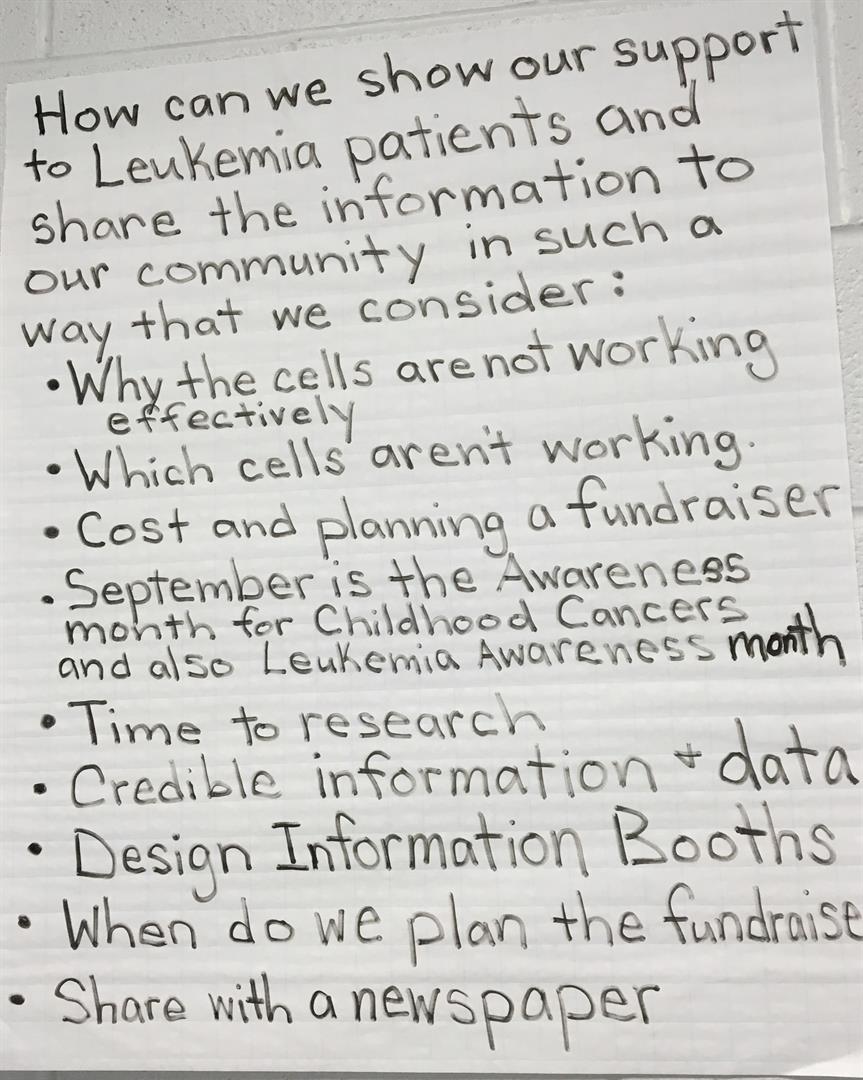 How can we show our support
to Leukemia patients and
share the information to
our community in such a
way that we consider:
• Why the cells are not working
effectively
• Which cells aren't working.
• Cost and planning a fundraiser
• September is the Awareness
month for Childhood Cancers
and also Leukemia Awareness month
• Time to research
• Credible information + data
• Design Information Booths
• When do we plan the fundraise
• Share with a newspaper